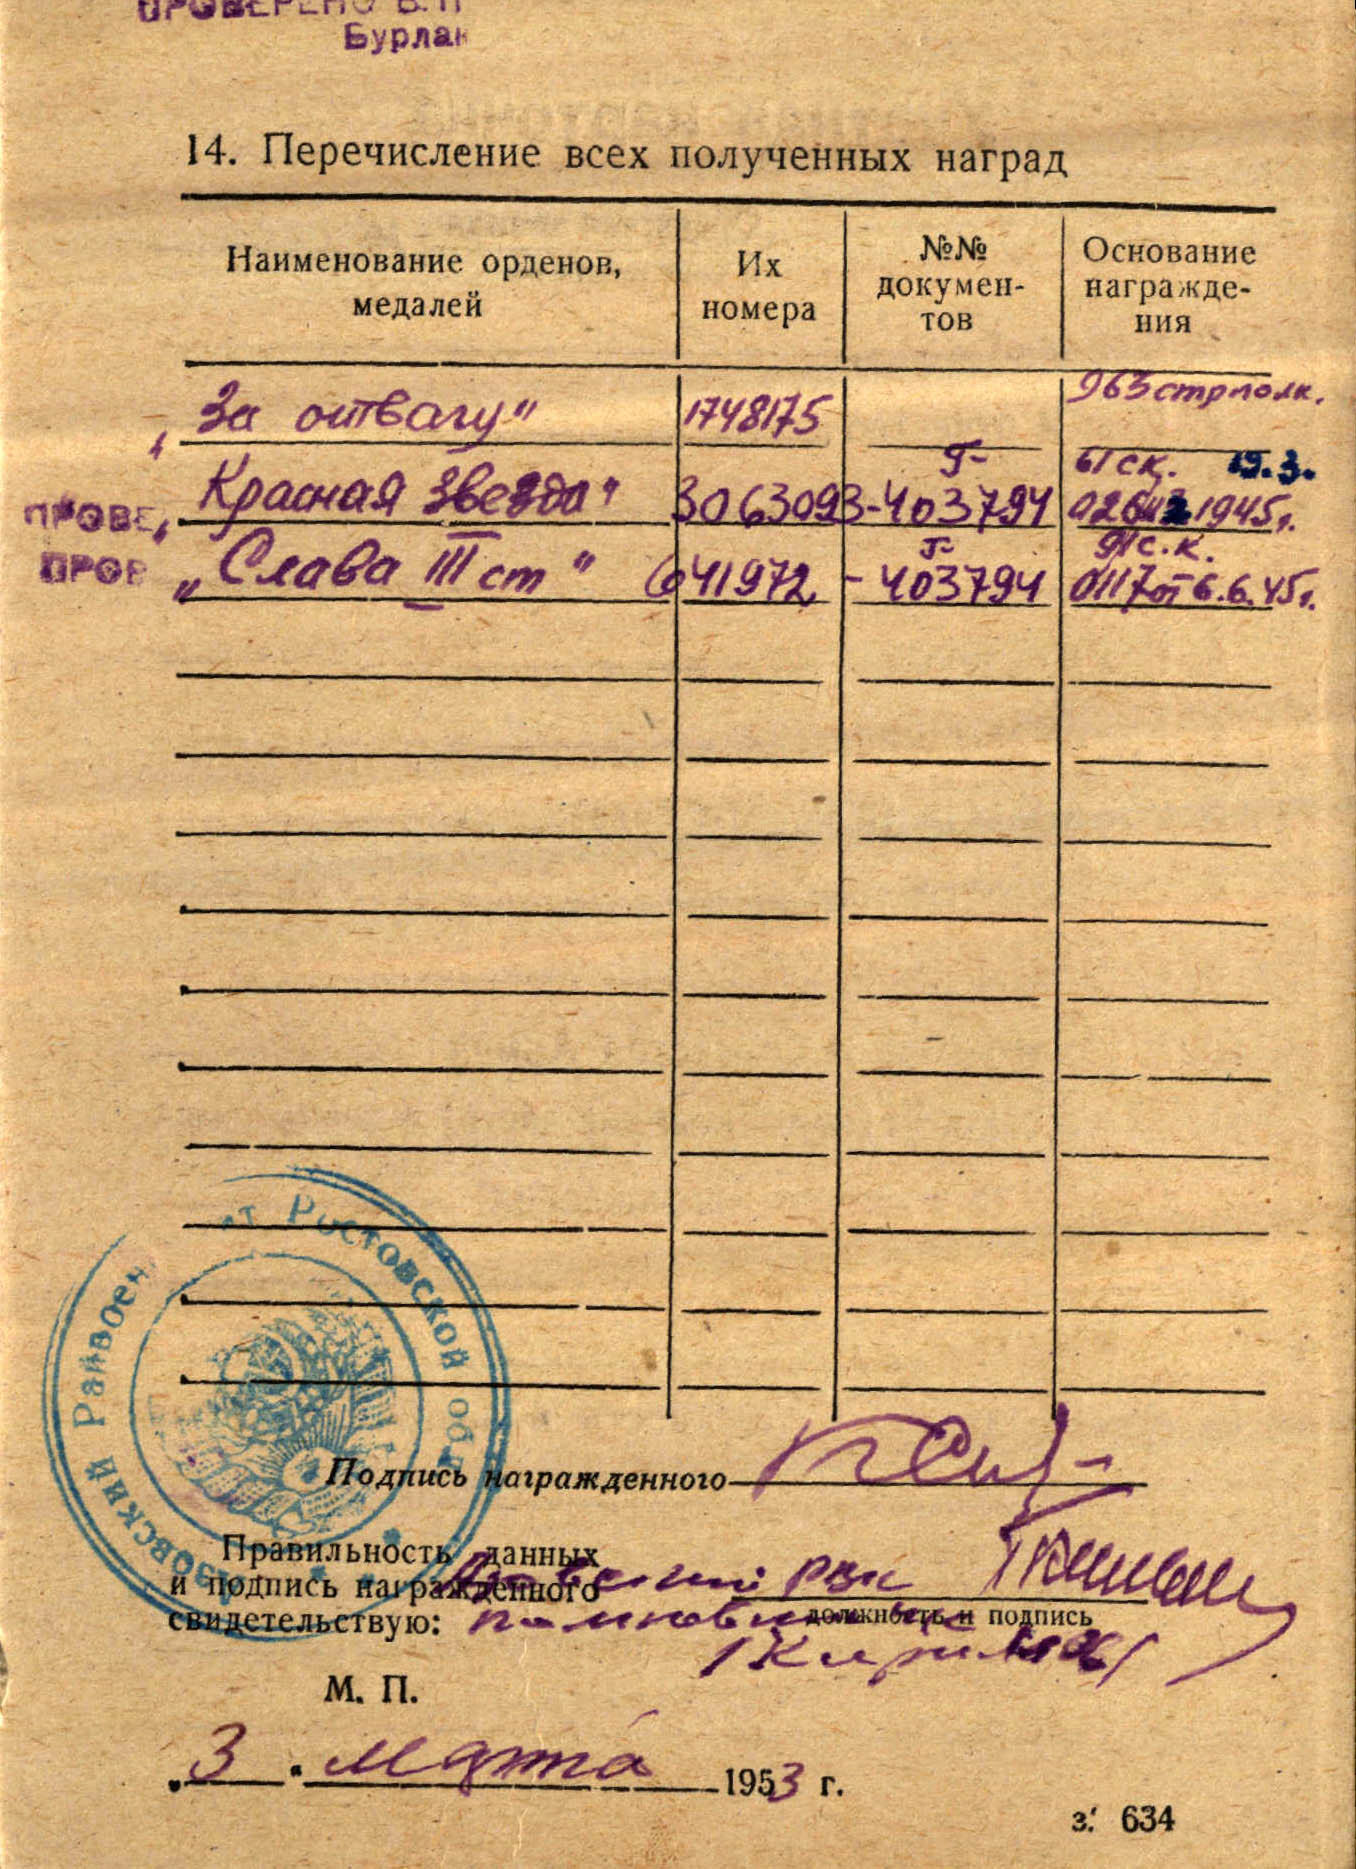 ПРОВЕРЕНО В. П
Бурлак
14. Перечисление всех полученных наград
Наименование орденов, медалей
Их номера
№№ документов
Основание награждения
„За отвагу" 1748175 963 стр полк.
„Красная Звезда" 3063093 Г-403794 61 ск. 19.3. 1945г.
„Слава III ст" 641972 Г-403794 91 с.к. 0117 от 6.6.45г.
ПРОВЕ
ПРОВ
Азовский Райвоен ат Ростовской обл
Подпись награжденного
Правильность данных
и подпись награжденного
свидетельствую:
Азовский РВК
должность и подпись
М. П.
„3". марта 1953 г.
з. 634